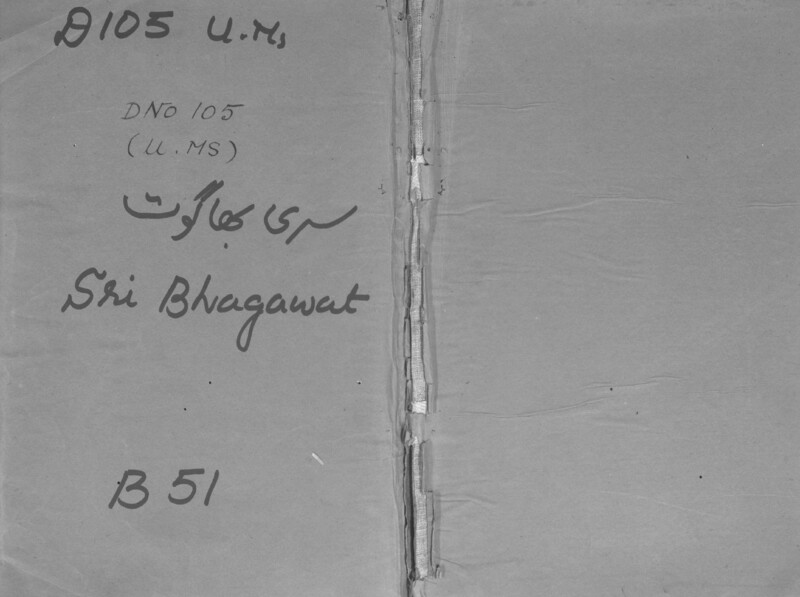 D105 U.Ms
DNO 105
(U.MS)
سری بھاگوت
Sri Bhagawat
B 51